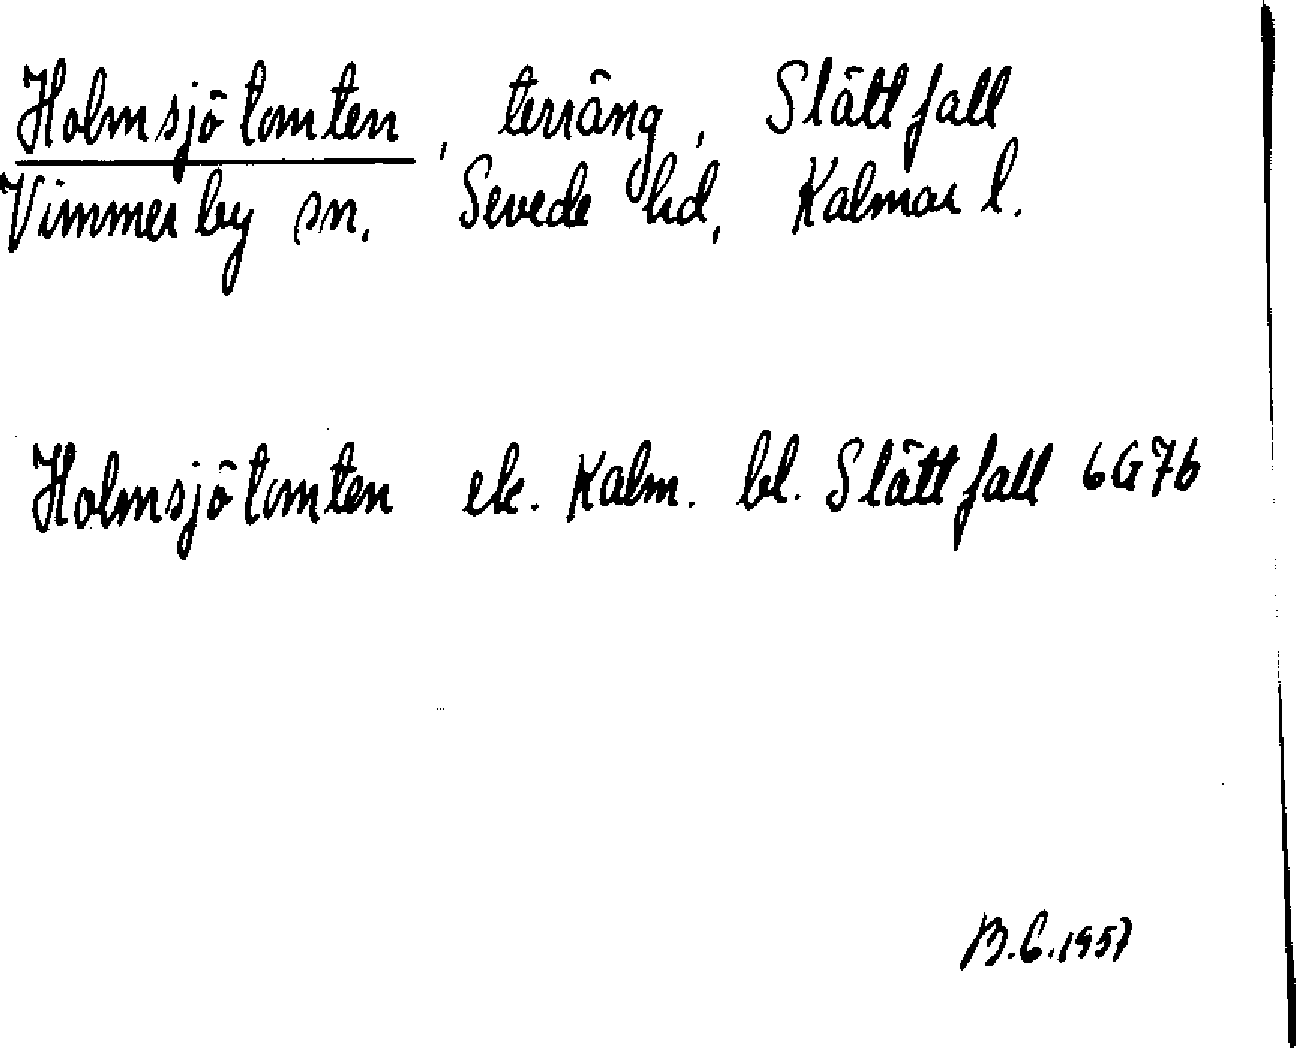 Holmsjötomten, terräng, Slättfall
Vimmerby sn. Sevede hd, Kalmar l.
Holmsjötomten ek. Kalm. bl. Slättfall 6G7b
B.C. 1957